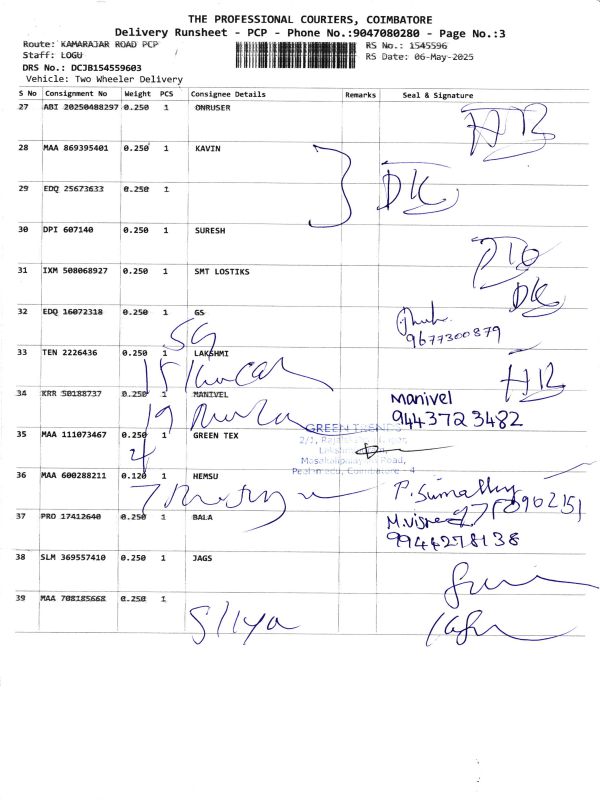 THE PROFESSIONAL COURIERS, COIMBATORE
Delivery Runsheet - PCP - Phone No.:9047080280 - Page No.:3
Route: KAMARAJAR ROAD PCP
RS No.: 1545596
Staff: LOGU
RS Date: 06-May-2025
DRS No.: DCJB154559603
Vehicle: Two Wheeler Delivery
S No Consignment No Weight PCS Consignee Details Remarks Seal & Signature
27 ABI 20250488297 0.250 1 ONRUSER
28 MAA 869395401 0.250 1 KAVIN
29 EDQ 25673633 0.250 1
DK
30 DPI 607140 0.250 1 SURESH
31 IXM 508068927 0.250 1 SMT LOSTIKS
DK
32 EDQ 16072318 0.250 1 GS
9677300879
33 TEN 2226436 0.250 1 LAKSHMI
34 KRR 50188737 0.250 1 MANIVEL Manivel
9443723482
35 MAA 111073467 0.250 1 GREEN TEX
GREEN TRENDS
Road,
Peelamedu, Coimbatore - 4
36 MAA 600288211 0.120 1 HEMSU
37 PRO 17412640 0.250 1 BALA
9944278138
38 SLM 369557410 0.250 1 JAGS
39 MAA 708185668 0.250 1